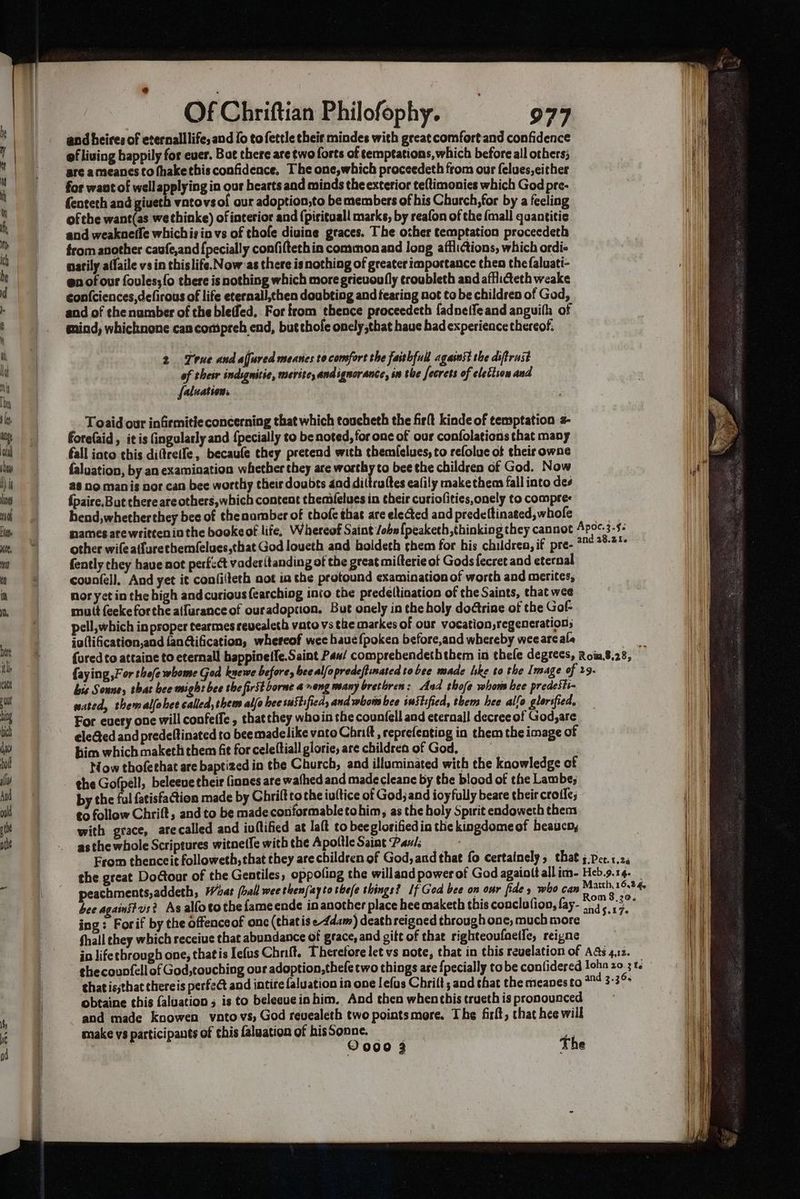 Of Chriſtian Philoſophy. 977
and heires of eternall life, and ſo to ſettle their mindes with great comfort and confidence
of liuing happily for euer. But there are two ſorts of temptations, which before all others,
are a meanes to ſhake this confidence. The one, which proceedeth from our ſelues, either
for want of well applying in our hearts and minds the exterior teſtimonies which God pre-
ſenteth and giueth vnto vs of our adoption, to be members of his Church, for by a feeling
of the want (as we thinke) of interior and ſpirituall marks, by reaſon of the ſmall quantitie
and weakneſſe which is in vs of thoſe diuine graces. The other temptation proceedeth
from another cauſe, and ſpecially conſiſteth in common and long afflictions, which ordi-
narily aſſaile vs in this life. Now as there is nothing of greater importance then the ſaluati-
on of our ſoules, ſo there is nothing which more grieuouſly troubleth and afflicteth weake
conſciences, deſirous of life eternall, then doubting and fearing not to be children of God,
and of the number of the bleſſed. For from thence proceedeth ſadneſſe and anguiſh of
mind, which none can compreh end, but thoſe onely, that haue had experience thereof.
2 True and aſſured meanes to comfort the faithfull against the diſtrust
of their indignitie, merites, and ignorance, in the ſecrets of election and
ſaluation.
To aid our infirmitie concerning that which toucheth the firſt kinde of temptation a-
foreſaid, it is ſingularly and ſpecially to be noted, for one of our conſolations that many
fall into this diſtreſſe, becauſe they pretend with themſelues, to reſolue of their owne
ſaluation, by an examination whether they are worthy to bee the children of God. Now
as no man is nor can bee worthy their doubts and diſtruſtes eaſily make them fall into de-
ſpaire. But there are others, which content themſelues in their curioſities, onely to compre-
hend, whether they bee of the number of thoſe that are elected and predeſtinated, whoſe
names are written in the booke of life, Whereof Saint Iohn ſpeaketh, thinking they cannot Apoc. 3.5.
other wiſe aſſure themſelues, that God loueth and holdeth them for his children, if pre- and 28.21.
ſently they haue not perfect vnderſtanding of the great miſterie of Gods ſecret and eternal
counſell. And yet it conſiſteth not in the profound examination of worth and merites,
nor yet in the high and curious ſearching into the predeſtination of the Saints, that wee
muſt ſeeke for the aſſurance of our adoption. But onely in the holy doctrine of the Goſ-
pell, which in proper tearmes reuealeth vnto vs the markes of our vocation, regeneration,
iuſtification, and ſanctification, whereof wee haue ſpoken before, and whereby wee are aſ-
ſured to attaine to eternall happineſſe. Saint Paul comprehendeth them in theſe degrees, Rom. 8.28,
ſaying, For thoſe whome God knewe before, hee alſo predeſtinated to bee made like to the Image of 29.
his Sonne, that hee might bee the first borne among many brethren: And thoſe whom hee predesti-
nated, them alſo hee called, them alſo hee iustified, and whom hee iustified, them hee alſo glorified.
For euery one will confeſſe, that they who in the counſell and eternall decree of God, are
elected and predeſtinated to bee made like vnto Chriſt, repreſenting in them the image of
him which maketh them fit for celeſtiall glorie, are children of God.
Now thoſe that are baptized in the Church, and illuminated with the knowledge of
the Goſpell, beleeue their ſinnes are waſhed and made cleane by the blood of the Lambe,
by the ful ſatisfaction made by Chriſt to the iuſtice of God, and ioyfully beare their croſſe,
to follow Chriſt, and to be made conformable to him, as the holy Spirit endoweth them
with grace, are called and iuſtified at laſt to bee glorified in the kingdome of heauen,
as the whole Scriptures witneſſe with the Apoſtle Saint Paul.
From thence it followeth, that they are children of God, and that ſo certainely, that 1. Pet. 1.24
the great Doctour of the Gentiles, oppoſing the will and power of God againſt all im- Heb. 9.14.
peachments, addeth, What ſhall wee then ſay to theſe things? If God bee on our ſide, who can Matth. 16.24.
bee against us? As alſo to the ſame ende in another place hee maketh this concluſion, ſay- Rom 8.30. and 5.17.
ing: For if by the offence of one (that is Adam) death reigned through one, much more
ſhall they which receiue that abundance of grace, and gift of that righteouſneſſe, reigne
in life through one, that is Ieſus Chriſt. Therefore let vs note, that in this reuelation of Acts 4.12.
the counſell of God, touching our adoption, theſe two things are ſpecially to be conſidered Iohn 20.31.
that is, that there is perfect and intire ſaluation in one Ieſus Chriſt, and that the meanes to and 3.36.
obtaine this ſaluation, is to beleeue in him. And then when this trueth is pronounced
and made knowen vnto vs, God reuealeth two points more. The firſt, that hee will
make vs participants of this ſaluation of his Sonne.
Oooo 3 The